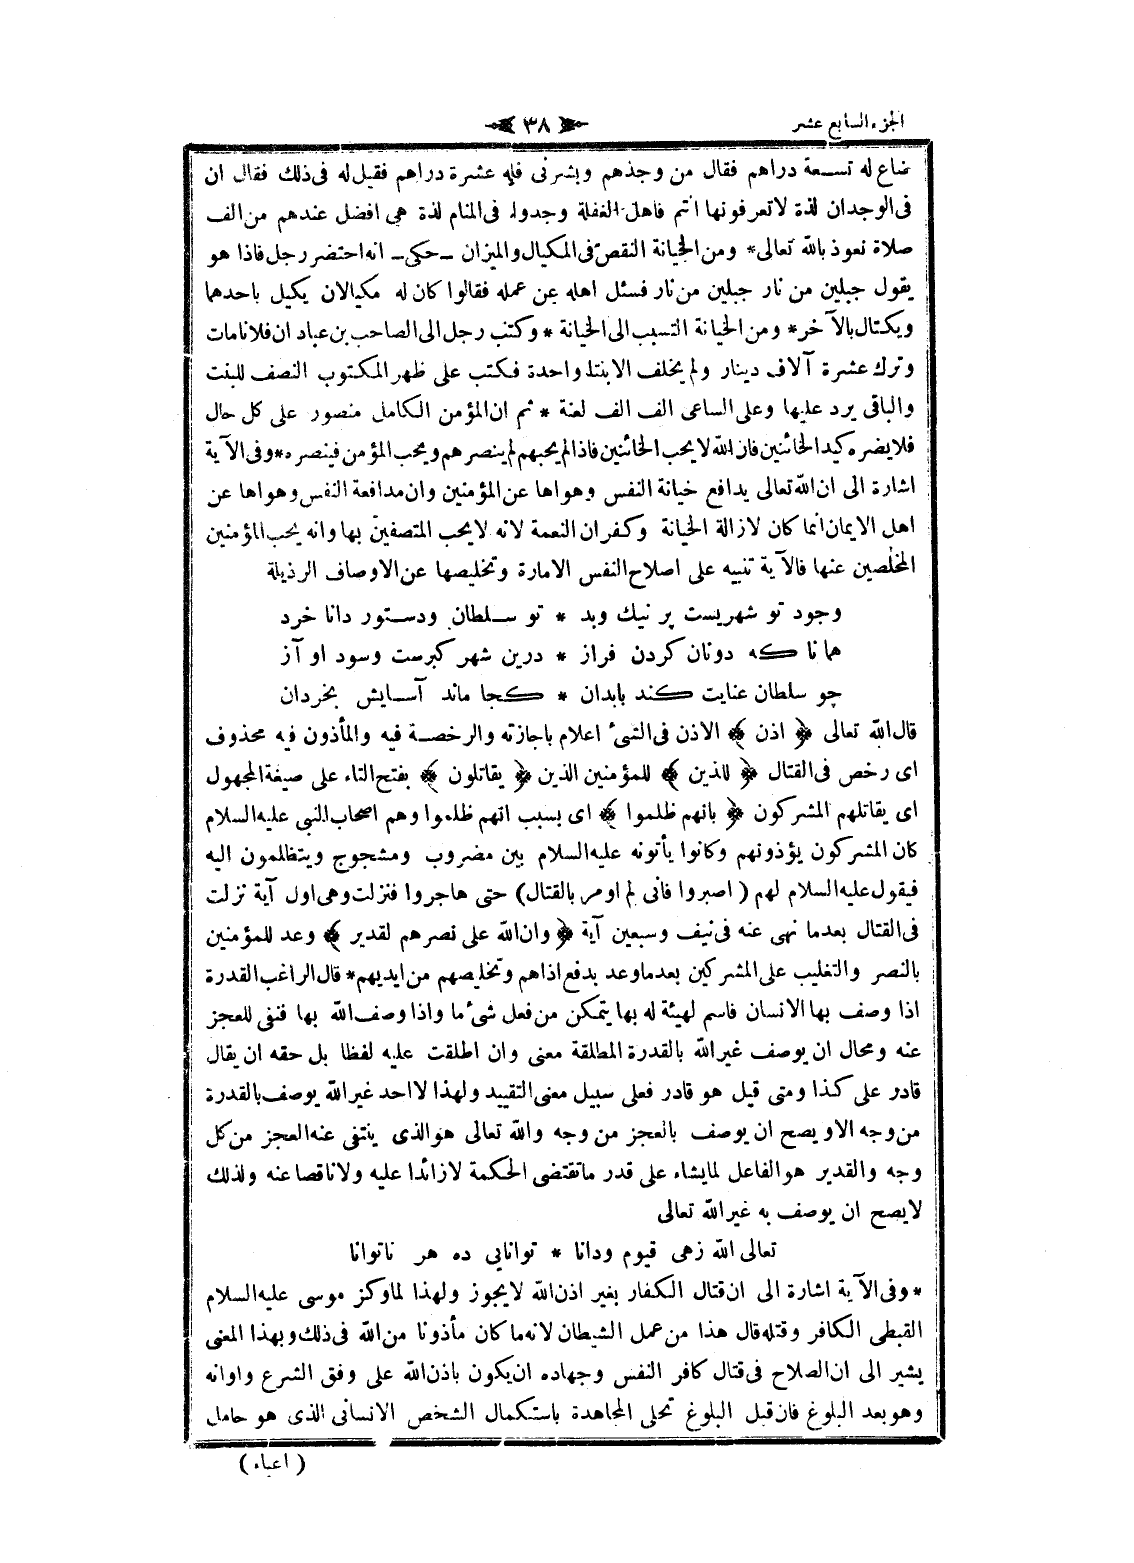 الجزء السابع عشر
٣٨
ضاع له تسعة دراهم فقال من وجدهم وبشرنى فله عشرة دراهم فقيل له فى ذلك فقال ان
فى الوجدان لذة لاتعرفونها انتم فاهل الغفلة وجدوا فى المنام لذة هى افضل عندهم من الف
صلاة نعوذ بالله تعالى* ومن الخيانة النقص فى المكيال والميزان ـ حكى ـ انه احتضر رجل فاذا هو
يقول جبلين من نار جبلين من نار فسئل اهله عن عمله فقالوا كان له مكيالان يكيل باحدهما
ويكتال بالآخر* ومن الخيانة التسبب الى الخيانة * وكتب رجل الى الصاحب بن عباد ان فلانا مات
وترك عشرة آلاف دينار ولم يخلف الا بنتا واحدة فكتب على ظهر المكتوب النصف للبنت
والباقى يرد عليها وعلى الساعى الف الف لعنة * ثم ان المؤمن الكامل منصور على كل حال
فلا يضره كيد الخائنين فان الله لا يحب الخائنين فاذا لم يحبهم لم ينصرهم ويحب المؤمن فينصره* وفى الآية
اشارة الى ان الله تعالى يدافع خيانة النفس وهواها عن المؤمنين وان مدافعة النفس وهواها عن
اهل الايمان انما كان لازالة الخيانة وكفران النعمة لانه لا يحب المتصفين بها وانه يحب المؤمنين
المخلصين عنها فالآية تنبيه على اصلاح النفس الامارة وتخليصها عن الاوصاف الرذيلة
وجود تو شهريست پر نيك وبد * تو سلطان ودستور دانا خرد
همانا كه دونان كردن فراز * درين شهر كبرست وسود او آز
چو سلطان عنايت كند بابدان * كجا ماند آسايش بخردان
قال الله تعالى ﴿ اذن ﴾ الاذن فى الشىء اعلام باجازته والرخصة فيه والمأذون فيه محذوف
اى رخص فى القتال ﴿ للذين ﴾ للمؤمنين الذين ﴿ يقاتلون ﴾ بفتح التاء على صيغة المجهول
اى يقاتلهم المشركون ﴿ بانهم ظلموا ﴾ اى بسبب انهم ظلموا وهم اصحاب النبى عليه السلام
كان المشركون يؤذونهم وكانوا يأتونه عليه السلام بين مضروب ومشجوج ويتظلمون اليه
فيقول عليه السلام لهم ( اصبروا فانى لم اومر بالقتال ) حتى هاجروا فنزلت وهى اول آية نزلت
فى القتال بعدما نهى عنه فى نيف وسبعين آية ﴿ وان الله على نصرهم لقدير ﴾ وعد للمؤمنين
بالنصر والتغليب على المشركين بعدما وعد بدفع اذاهم وتخليصهم من ايديهم* قال الراغب القدرة
اذا وصف بها الانسان فاسم لهيئة له بها يتمكن من فعل شىء ما واذا وصف الله بها فنفى للعجز
عنه ومحال ان يوصف غير الله بالقدرة المطلقة معنى وان اطلقت عليه لفظا بل حقه ان يقال
قادر على كذا ومتى قيل هو قادر فعلى سبيل معنى التقييد ولهذا لا احد غير الله يوصف بالقدرة
من وجه الا ويصح ان يوصف بالعجز من وجه والله تعالى هو الذى ينتفى عنه العجز من كل
وجه والقدير هو الفاعل لما يشاء على قدر ما تقتضى الحكمة لا زائدا عليه ولا ناقصا عنه ولذلك
لا يصح ان يوصف به غير الله تعالى
تعالى الله زهى قيوم ودانا * توانايى ده هر ناتوانا
* وفى الآية اشارة الى ان قتال الكفار بغير اذن الله لا يجوز ولهذا لما وكز موسى عليه السلام
القبطى الكافر وقتله قال هذا من عمل الشيطان لانه ما كان مأذونا من الله فى ذلك وبهذا المعنى
يشير الى ان الصلاح فى قتال كافر النفس وجهاده ان يكون باذن الله على وفق الشرع واوانه
وهو بعد البلوغ فان قبل البلوغ تحلى المجاهدة باستكمال الشخص الانسانى الذى هو حامل
( اعباء )